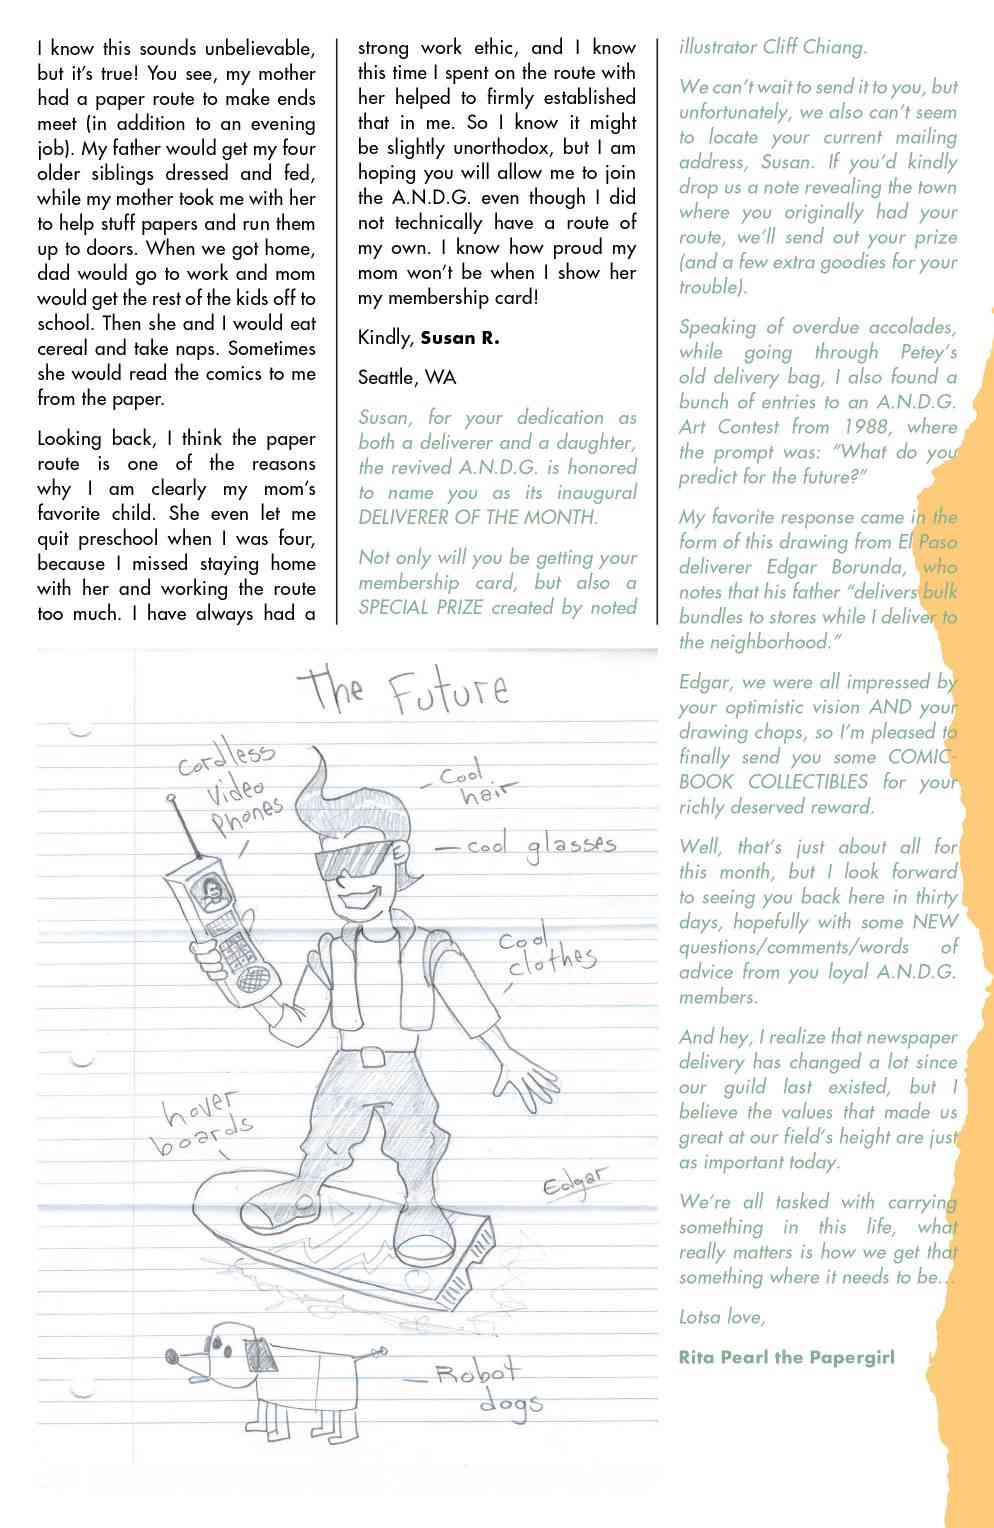 I know this sounds unbelievable,
but it's true! You see, my mother
had a paper route to make ends
meet (in addition to an evening
job). My father would get my four
older siblings dressed and fed,
while my mother took me with her
to help stuff papers and run them
up to doors. When we got home,
dad would go to work and mom
would get the rest of the kids off to
school. Then she and I would eat
cereal and take naps. Sometimes
she would read the comics to me
from the paper.
Looking back, I think the paper
route is one of the reasons
why I am clearly my mom's
favorite child. She even let me
quit preschool when I was four,
because I missed staying home
with her and working the route
too much. I have always had a
strong work ethic, and I know
this time I spent on the route with
her helped to firmly established
that in me. So I know it might
be slightly unorthodox, but I am
hoping you will allow me to join
the A.N.D.G. even though I did
not technically have a route of
my own. I know how proud my
mom won't be when I show her
my membership card!
Kindly, Susan R.
Seattle, WA
Susan, for your dedication as
both a deliverer and a daughter,
the revived A.N.D.G. is honored
to name you as its inaugural
DELIVERER OF THE MONTH.
Not only will you be getting your
membership card, but also a
SPECIAL PRIZE created by noted
illustrator Cliff Chiang.
We can't wait to send it to you, but
unfortunately, we also can't seem
to locate your current mailing
address, Susan. If you'd kindly
drop us a note revealing the town
where you originally had your
route, we'll send out your prize
(and a few extra goodies for your
trouble).
Speaking of overdue accolades,
while going through Petey's
old delivery bag, I also found a
bunch of entries to an A.N.D.G.
Art Contest from 1988, where
the prompt was: "What do you
predict for the future?"
My favorite response came in the
form of this drawing from El Paso
deliverer Edgar Borunda, who
notes that his father "delivers bulk
bundles to stores while I deliver to
the neighborhood."
Edgar, we were all impressed by
your optimistic vision AND your
drawing chops, so I'm pleased to
finally send you some COMIC-
BOOK COLLECTIBLES for your
richly deserved reward.
Well, that's just about all for
this month, but I look forward
to seeing you back here in thirty
days, hopefully with some NEW
questions/comments/words of
advice from you loyal A.N.D.G.
members.
And hey, I realize that newspaper
delivery has changed a lot since
our guild last existed, but I
believe the values that made us
great at our field's height are just
as important today.
We're all tasked with carrying
something in this life, what
really matters is how we get that
something where it needs to be...
Lotsa love,
Rita Pearl the Papergirl
The Future
cordless
video
phones
cool
hair
cool glasses
cool
clothes
hover
boards
Edgar
Robot
dogs